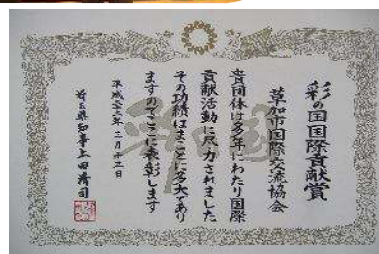 彩の国国際貢献賞
草加市国際交流協会
貴団体は多年にわたり国際
貢献活動に尽力されました
その功績はまことに多大であり
ますのでここに表彰します
埼玉県知事上田清司